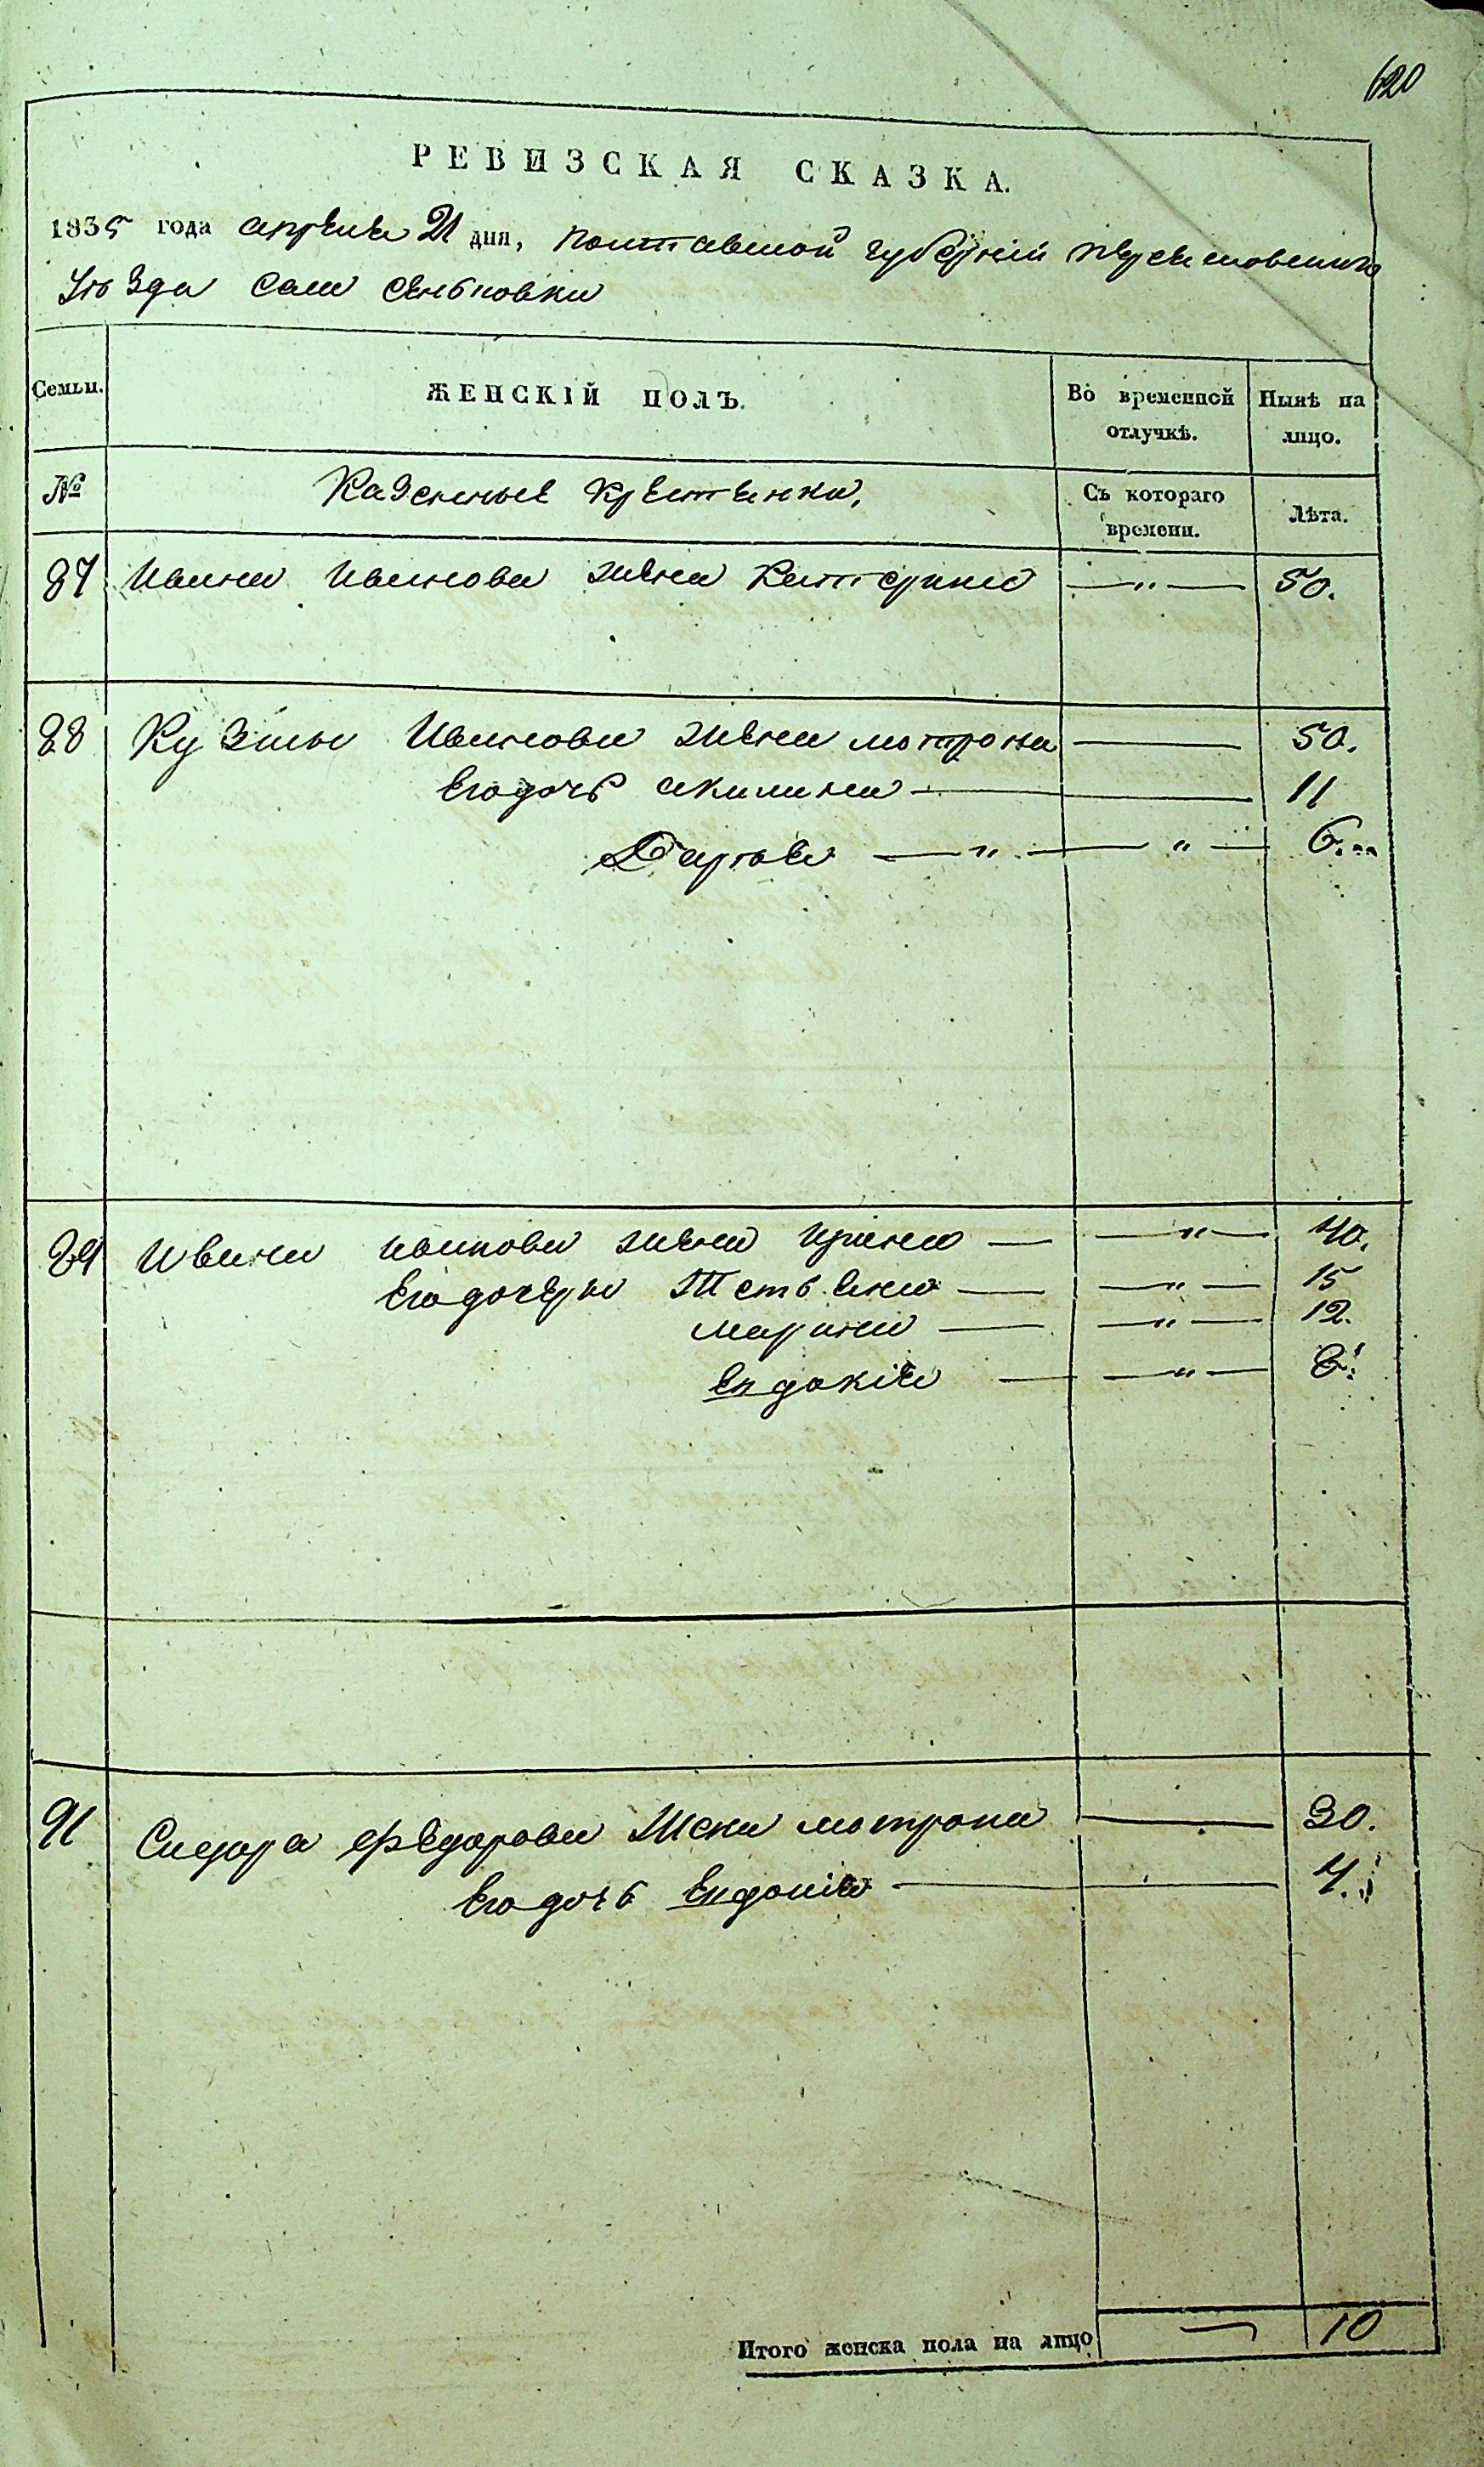 620
РЕВИЗСКАЯ СКАЗКА.
1835 года апреля 21 дня, полтавской губернии переясловского
Уѣзда села сеньковки
Семьи. ЖЕНСКІЙ ПОЛЪ. Во временной отлучкѣ. Нынѣ на лицо.
№ Казенные крестьянки, Съ котораго времени. Лѣта.
87 Ивана Иванова жена Катерина — " — 50.
88 Кузмы Иванова жена мотрона — 50.
Его дочь акилина — 11
Дарья — " — " — 6.
89 Ивана иванова жена ирина — — " — 40.
Его дочеры Тетьяна — — " — 15
марина — — " — 12.
Евдокія — — " — 8.
91 Сидора федорова жена мотрона — 30.
Его дочь Евдокія — 4.
Итого женска пола на лицо — 10